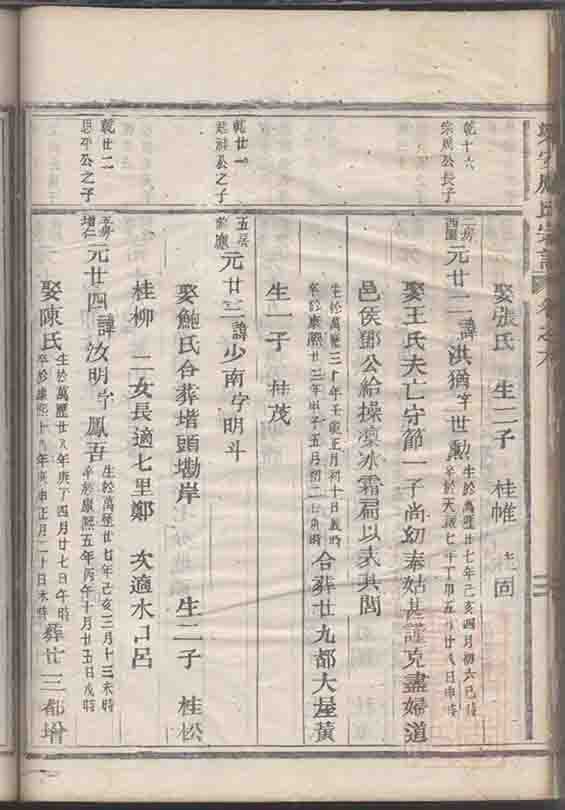 氏宗譜 卷之六
娶張氏 生二子 桂帷 固
乾十六
宗 公長子
二房
西園
元廿二 諱洪猶 字世勲
生於萬曆廿七年己亥四月初六巳時
卒於天啟七年丁卯五月廿八日申時
娶王氏夫亡守節一子尚幼奉姑甚謹克盡婦道
邑侯鄧公給操凛冰霜扁以表其閭
生於萬曆三十年壬寅正月初十日 時
卒於康熙廿三年甲子五月初二日 時
合葬廿九都大屋黃
生一子 桂茂
乾廿一
公之子
五房
元廿三 諱少南 字明斗
娶鮑氏合葬堦頭墈岸 生二子 桂松
桂柳 二女長適七里鄭 次適水口呂
乾廿二
思平公之子
五房
增仁
元廿四 諱汝明 字鳳吾
生於萬曆廿七年己亥三月十三未時
卒於康熙五年丙午十月廿五日戌時
娶陳氏
生於萬曆廿八年庚子四月廿七日午時
卒於康熙十九年庚申正月二十日未時
葬廿三都增